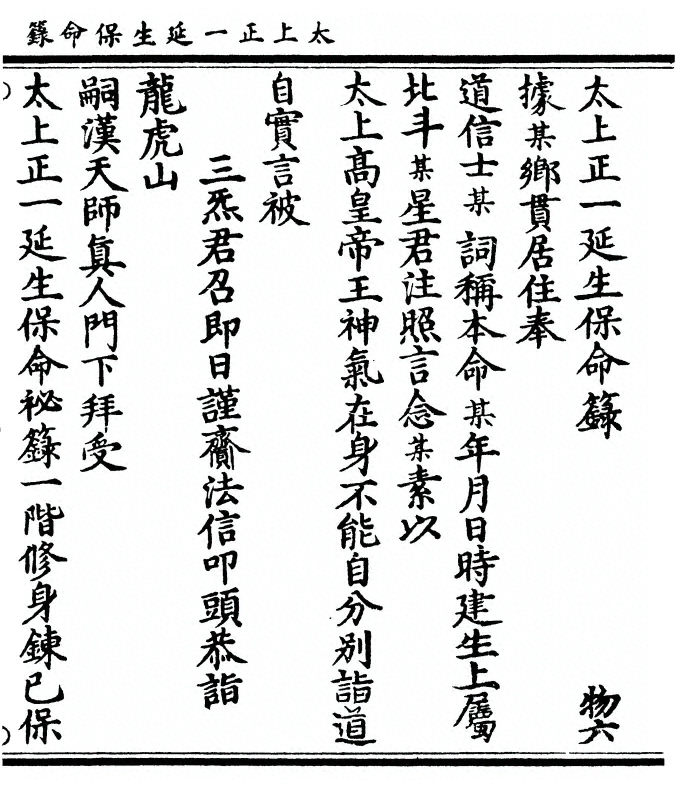 太上正一延生保命籙
太上正一延生保命籙 物六
據某鄉貫居住奉
道信士某詞稱本命某年月日時建生上屬
北斗某星君注照言念某素以
太上高皇帝王神氣在身不能自分別詣道
自實言被
三炁君召即日謹齎法信叩頭恭詣
龍虎山
嗣漢天師眞人門下拜受
太上正一延生保命祕籙一階修身鍊已保